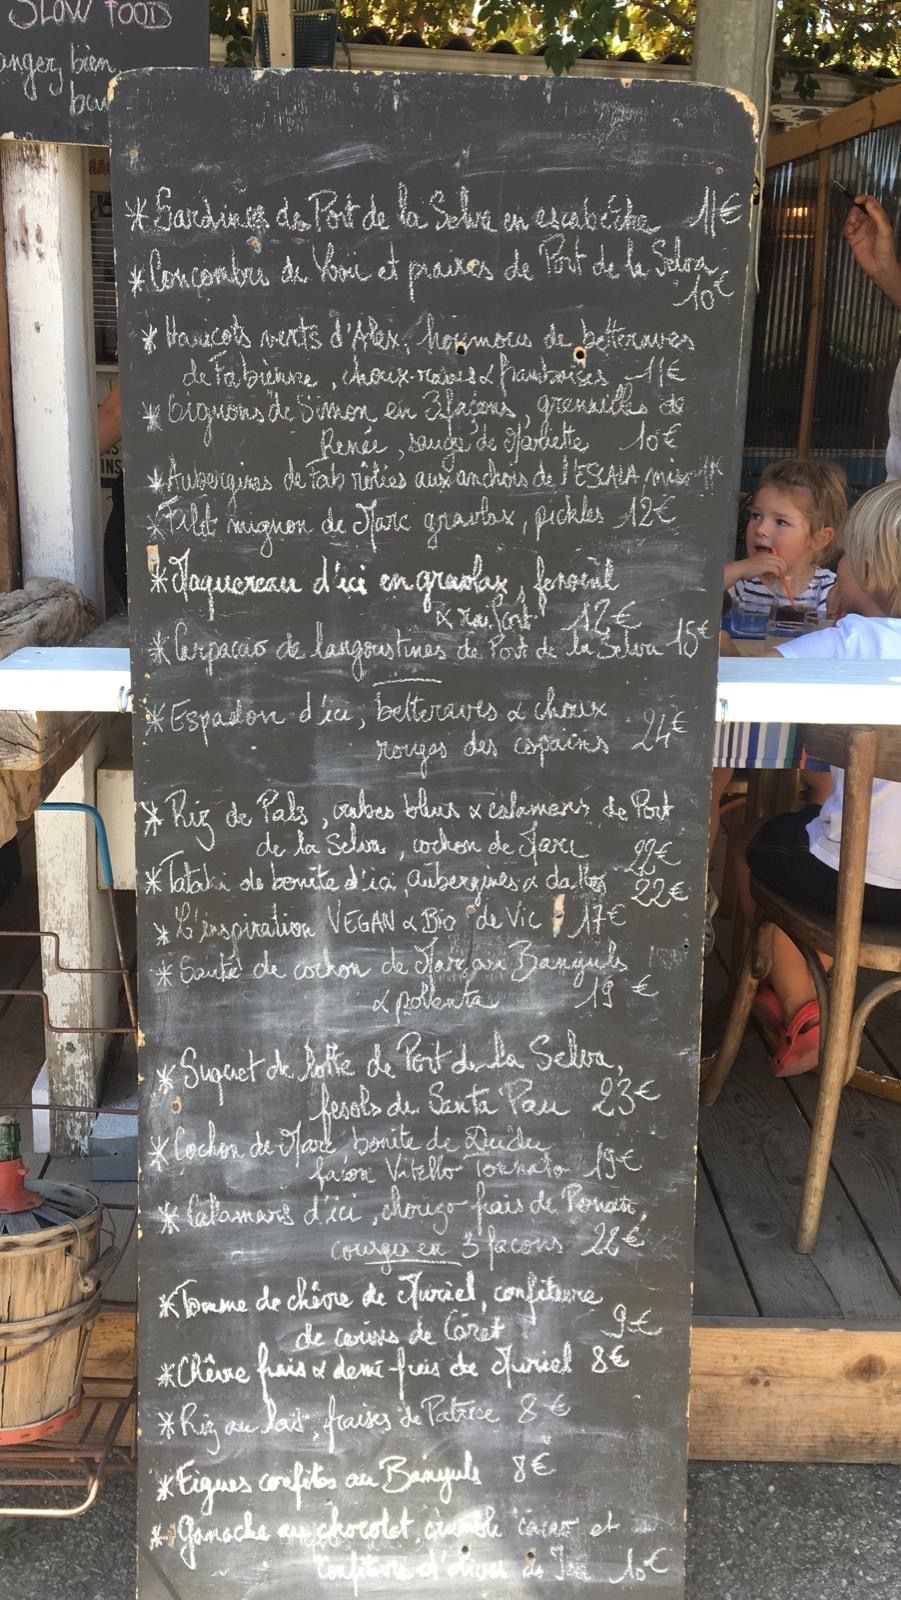 SLOW FOOD
manger, bien
* Sardines de Port de la Selva en escabèche 11€
* Concombre de et praires de Port de la Selva
10€
* Haricots verts d'Alex, houmous de betteraves
de Fabienne, choux-raves & framboises 11€
* Oignons de Simon en 3 façons, grenailles de
Renée, sauge de Mariette 10€
* Aubergines de Fab rôties aux anchois de l'ESCALA, miso
* Filet mignon de Marc gravlax, pickles 12€
* Maquereau d'ici en gravlax, fenouil
& raifort 12€
* Carpacio de langoustines de Port de la Selva 15€
* Espadon d'ici, betteraves & choux
rouges des copains 24€
* Riz de Pals, crabes bleus & calamars de Port
de la Selva, cochon de Marc 22€
* Tataki de bonite d'ici, aubergines & dattes 22€
* L'inspiration VEGAN & BIO de Vic 17€
* Sauté de cochon de Marc au Banyuls
& polenta 19€
* Suquet de lotte de Port de la Selva,
fesols de Santa Pau 23€
* Cochon de Marc bonite de Dudu
façon Vitello Tonnato 19€
* Calamars d'ici, chorizo frais de
courges en 3 façons 22€
* Tomme de chèvre de Muriel, confiture
de cerises de Céret 9€
* Chèvre frais & demi-frais de Muriel 8€
* Riz au lait, fraises de Patrice 8€
* Figues confites au Banyuls 8€
* Ganache au chocolat, crumble cacao et
confiture d'olives de 10€